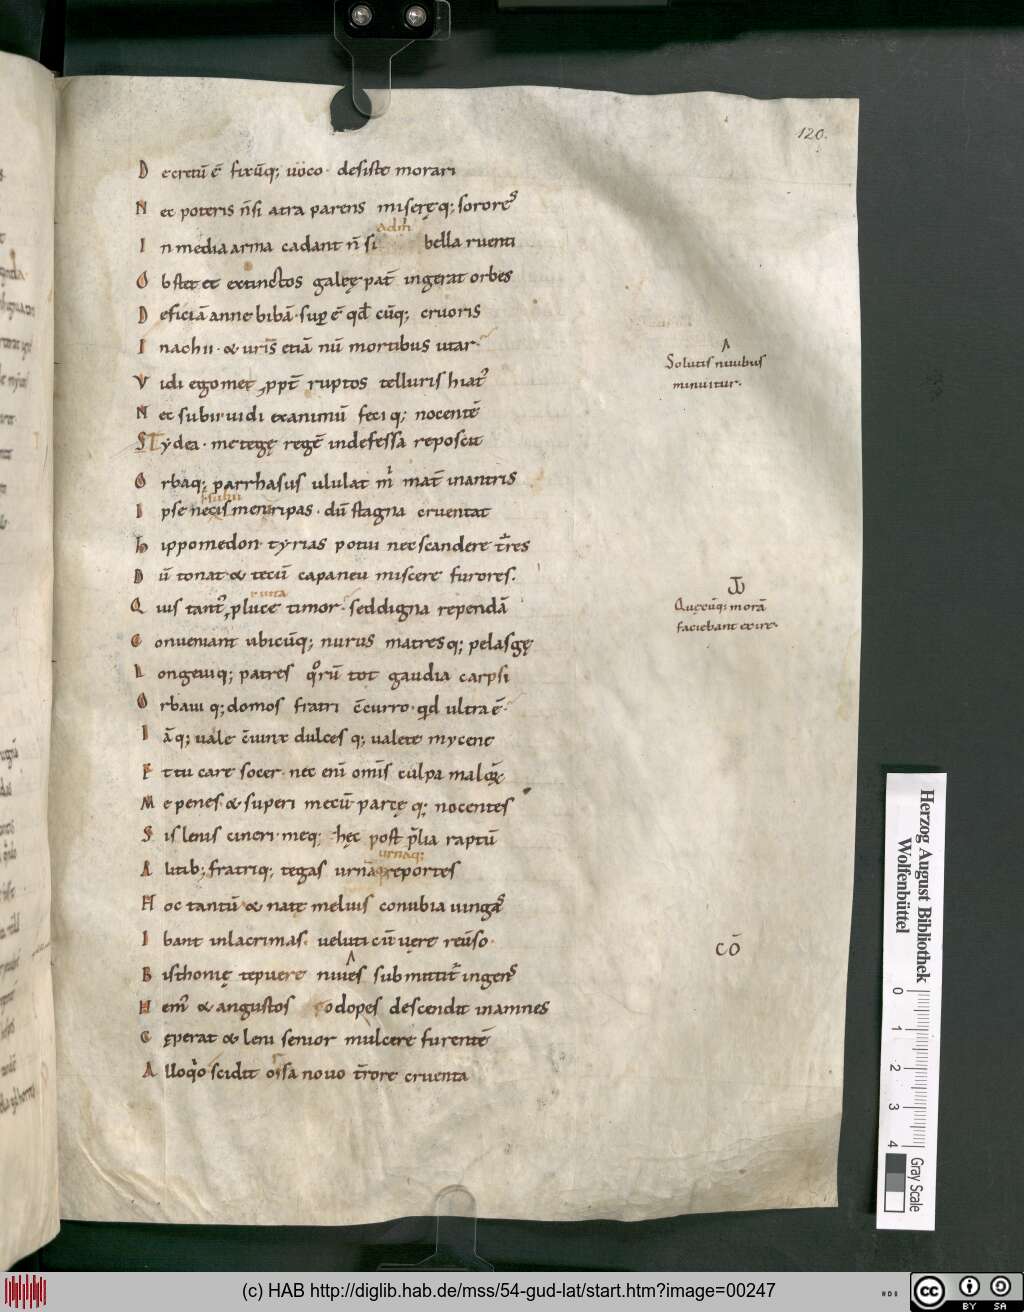 120.
D ecretū ē fixūq; uoco· desiste morari
N ec poteris n̄si atra parens miseręq; sorores
admi
I n media arma cadant n̄ si bella ruenti
O bstet et extinctos galeę pat̄ ingerat orbes
D eficiā anne bibā· sup̱ ē qd̄ cūq; cruoris
I nachii· & ur̄is etiā nū mortibus utar·
V idi egomet ꝓpt̄ ruptos telluris hiat᾿
Solutis niuibus
minuitur·
N ec subii· uidi exanimū feci q; nocentē
S Tydea· me tegę regē indefessa reposcit
O rbaq; parrhasus ululat m̄ mat̄ in antris
I pse necis meniripas· dū stagna cruentat
h ippomedon· tyrias potui nec scandere t̄res
D ū tonat & tecū capaneu miscere furores·
Q uis tant᾿ ꝓluce timor· sed digna rependā
Quęcūq; morā
faciebant exire·
C onueniant ubicūq; nurus matres q; pelasgę
L ongeuiq; patres qͦrū tot gaudia carpsi
O rbaui q; domos fratri c̄curro· qd ultra ē·
I āq; uale c̄iunx dulces q; ualete mycene
E t tu care socer· nec eni omīs culpa malorū
M e penes· & superi mecū partę q; nocentes
S is lenis cineri· meq; hęc post p̄lia raptū
urnaq;
A litib; fratriq; tegas urnā reportes
H oc tantū & nate melius conubia iungas
I bant in lacrimas· ueluti cū uęre reūso·
CŌ
B isthonię tepuere niues submittit᾿ ingens
H em᾿ & angustos rodopes descendit in amnes
C ęperat & leni senior mulcere furentē
A lloqͦo scidit orsa nouo t̄rore cruenta
Herzog August Bibliothek
Wolfenbüttel
0 1 2 3 4
Gray Scale
(c) HAB http://diglib.hab.de/mss/54-gud-lat/start.htm?image=00247
cc BY SA